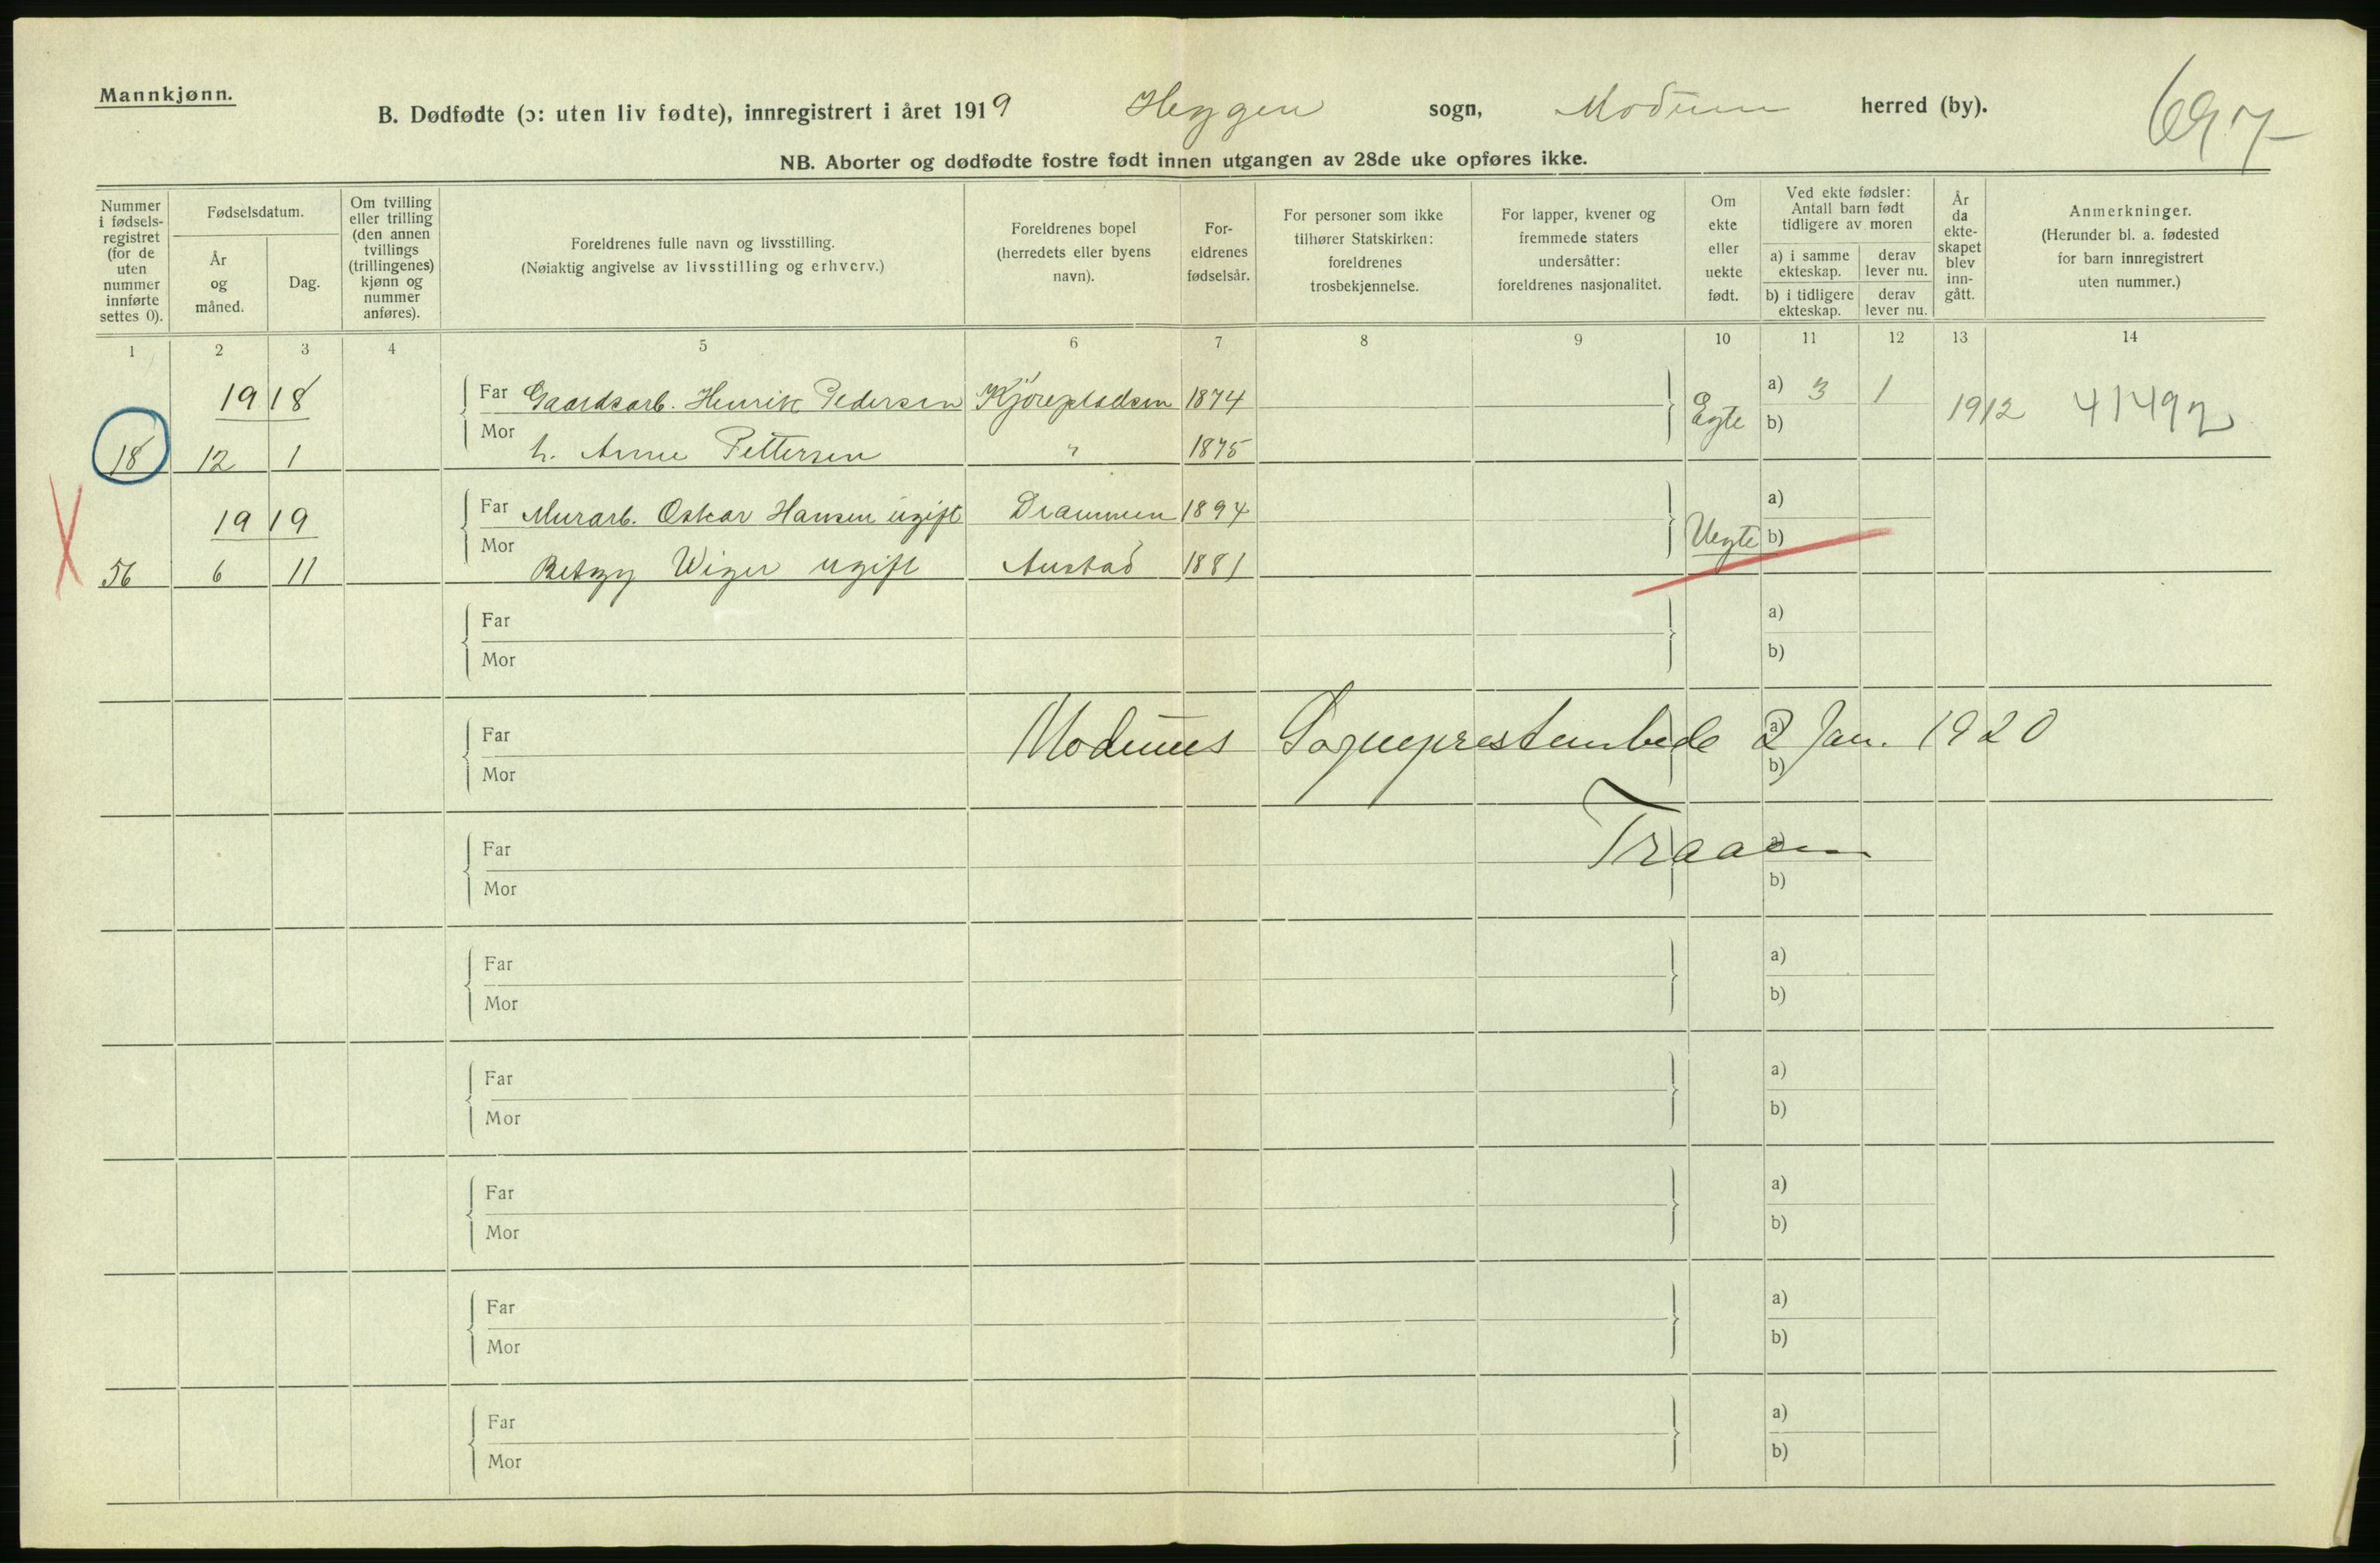 Mannkjønn.
B. Dødfødte (ɔ: uten liv fødte), innregistrert i året 1919 Heggen sogn, Modum herred (by).
697
NB. Aborter og dødfødte fostre født innen utgangen av 28de uke opføres ikke.
Nummer i fødsels-registret (for de uten nummer innførte settes 0).
Fødselsdatum.
År og måned.
Dag.
Om tvilling eller trilling (den annen tvillings (trillingenes) kjønn og nummer anføres).
Foreldrenes fulle navn og livsstilling.
(Nøiaktig angivelse av livsstilling og erhverv.)
Foreldrenes bopel (herredets eller byens navn).
For-eldrenes fødselsår.
For personer som ikke tilhører Statskirken: foreldrenes trosbekjennelse.
For lapper, kvener og fremmede staters undersåtter: foreldrenes nasjonalitet.
Om ekte eller uekte født.
Ved ekte fødsler: Antall barn født tidligere av moren
a) i samme ekteskap.
derav lever nu.
b) i tidligere ekteskap.
derav lever nu.
År da ekte-skapet blev inn-gått.
Anmerkninger.
(Herunder bl. a. fødested for barn innregistrert uten nummer.)
1 2 3 4 5 6 7 8 9 10 11 12 13 14
1918
Far Gaardsarb. Henrik Pedersen Kjørepladsen 1874 Egte a) 3 1 1912 41492
18 12 1 Mor h. Anne Pettersen " 1875 b)
1919
Far Murarb. Oskar Hansen ugift Drammen 1894 Uegte a)
56 6 11 Mor Betzy Wiger ugift Austad 1881 b)
Far a)
Mor b)
Far Modums Sogneprestembede 2 Jan. 1920 a)
Mor b)
Far Traaen a)
Mor b)
Far a)
Mor b)
Far a)
Mor b)
Far a)
Mor b)
Far a)
Mor b)
Far a)
Mor b)